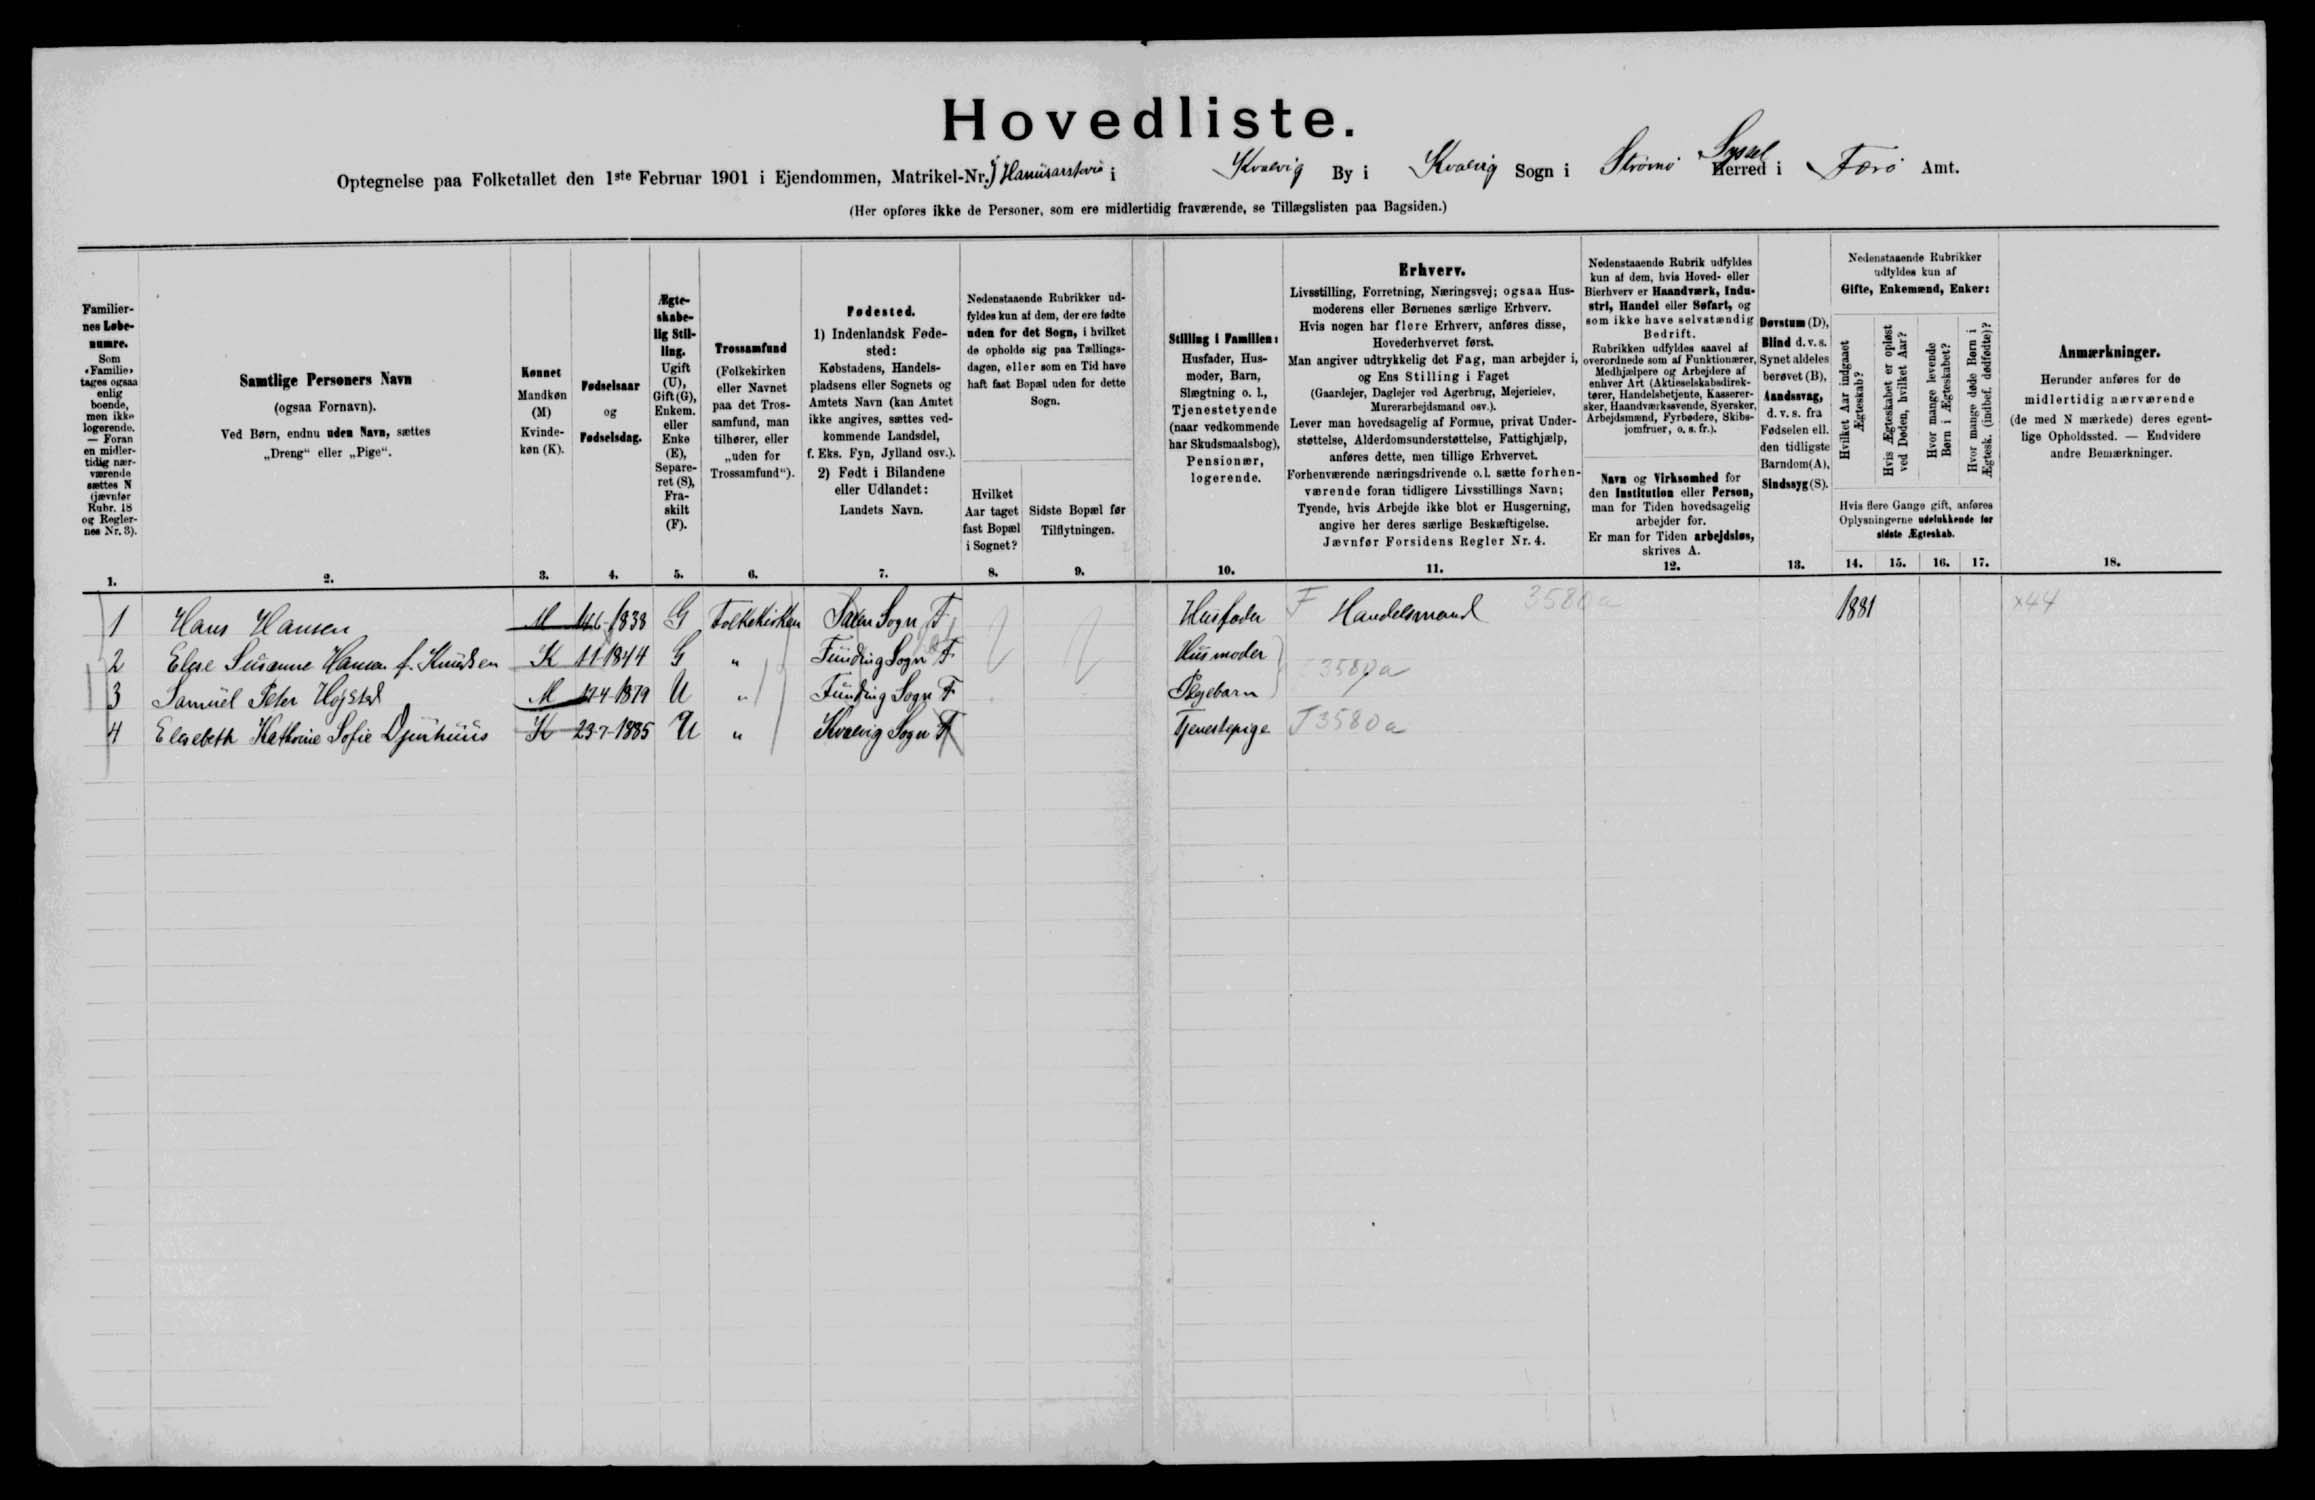 Hovedliste.
Optegnelse paa Folketallet den 1ste Februar 1901 i Ejendommen, Matrikel-Nr. i Kvalvig By i Kvalvig Sogn i Strømø Syssel Herred i Færø Amt.
(Her opføres ikke de Personer, som ere midlertidig fraværende, se Tillægslisten paa Bagsiden.)
Familier-
nes Løbe-
numre.
Som
«Familie»
tages ogsaa
enlig
boende,
men ikke
logerende.
— Foran
en midler-
tidig nær-
værende
sættes N
(jævnfør
Rubr. 18
og Regler-
nes Nr. 3).
1.
Samtlige Personers Navn
(ogsaa Fornavn).
Ved Børn, endnu uden Navn, sættes
„Dreng“ eller „Pige“.
2.
Kønnet
Mandkøn
(M)
Kvinde-
køn (K).
3.
Fødselsaar
og
Fødselsdag.
4.
Ægte-
skabe-
lig Stil-
ling.
Ugift
(U),
Gift (G),
Enkem.
eller
Enke
(E),
Separe-
ret (S),
Fra-
skilt
(F).
5.
Trossamfund
(Folkekirken
eller Navnet
paa det Tros-
samfund, man
tilhører, eller
„uden for
Trossamfund“).
6.
Fødested.
1) Indenlandsk Føde-
sted:
Købstadens, Handels-
pladsens eller Sognets og
Amtets Navn (kan Amtet
ikke angives, sættes ved-
kommende Landsdel,
f. Eks. Fyn, Jylland osv.).
2) Født i Bilandene
eller Udlandet:
Landets Navn.
7.
Nedenstaaende Rubrikker ud-
fyldes kun af dem, der ere fødte
uden for det Sogn, i hvilket
de opholde sig paa Tællings-
dagen, eller som en Tid have
haft fast Bopæl uden for dette
Sogn.
Hvilket
Aar taget
fast Bopæl
i Sognet?
8.
Sidste Bopæl før
Tilflytningen.
9.
Stilling i Familien:
Husfader, Hus-
moder, Barn,
Slægtning o. l.,
Tjenestetyende
(naar vedkommende
har Skudsmaalsbog),
Pensionær,
logerende.
10.
Erhverv.
Livsstilling, Forretning, Næringsvej; ogsaa Hus-
moderens eller Børnenes særlige Erhverv.
Hvis nogen har flere Erhverv, anføres disse,
Hovederhvervet først.
Man angiver udtrykkelig det Fag, man arbejder i,
og Ens Stilling i Faget
(Gaardejer, Daglejer ved Agerbrug, Mejerielev,
Murerarbejdsmand osv.).
Lever man hovedsagelig af Formue, privat Under-
støttelse, Alderdomsunderstøttelse, Fattighjælp,
anføres dette, men tillige Erhvervet.
Forhenværende næringsdrivende o.l. sætte forhen-
værende foran tidligere Livsstillings Navn;
Tyende, hvis Arbejde ikke blot er Husgerning,
angive her deres særlige Beskæftigelse.
Jævnfør Forsidens Regler Nr. 4.
11.
Nedenstaaende Rubrik udfyldes
kun af dem, hvis Hoved- eller
Bierhverv er Haandværk, Indu-
stri, Handel eller Søfart, og
som ikke have selvstændig
Bedrift.
Rubrikken udfyldes saavel af
overordnede som af Funktionærer,
Medhjælpere og Arbejdere af
enhver Art (Aktieselskabsdirek-
tører, Handelsbetjente, Kasserer-
sker, Haandværkssvende, Syersker,
Arbejdsmænd, Fyrbødere, Skibs-
jomfruer, o. s. fr.).
Navn og Virksomhed for
den Institution eller Person,
man for Tiden hovedsagelig
arbejder for.
Er man for Tiden arbejdsløs,
skrives A.
12.
Døvstum (D),
Blind d. v. s.
Synet aldeles
berøvet (B),
Aandssvag,
d. v. s. fra
Fødselen ell.
den tidligste
Barndom (A),
Sindssyg (S).
13.
Nedenstaaende Rubrikker
udfyldes kun af
Gifte, Enkemænd, Enker:
Hvilket Aar indgaaet
Ægteskab?
Hvis Ægteskabet er opløst
ved Døden, hvilket Aar?
Hvor mange levende
Børn i Ægteskabet?
Hvor mange døde Børn i
Ægtesk. (indbef. dødfødte)?
Hvis flere Gange gift, anføres
Oplysningerne udelukkende for
sidste Ægteskab.
14. 15. 16. 17.
Anmærkninger.
Herunder anføres for de
midlertidig nærværende
(de med N mærkede) deres egent-
lige Opholdssted. — Endvidere
andre Bemærkninger.
18.
1 Hans Hansen M 1838 G Folkekirken Saxen Sogn F. Husfader F Handelsmand 3580a 1881 x44
2 Else Susanne Hansen f. Knudsen K 1844 G " Funding Sogn F Husmoder 3580a
3 Samuel Peter Højsted M 1879 U " Funding Sogn F Plejebarn
4 Elsebeth Kathrine Sofie Djurhuus K 23-7-1885 U " Kvalvig Sogn F Tjenestepige T 3580a